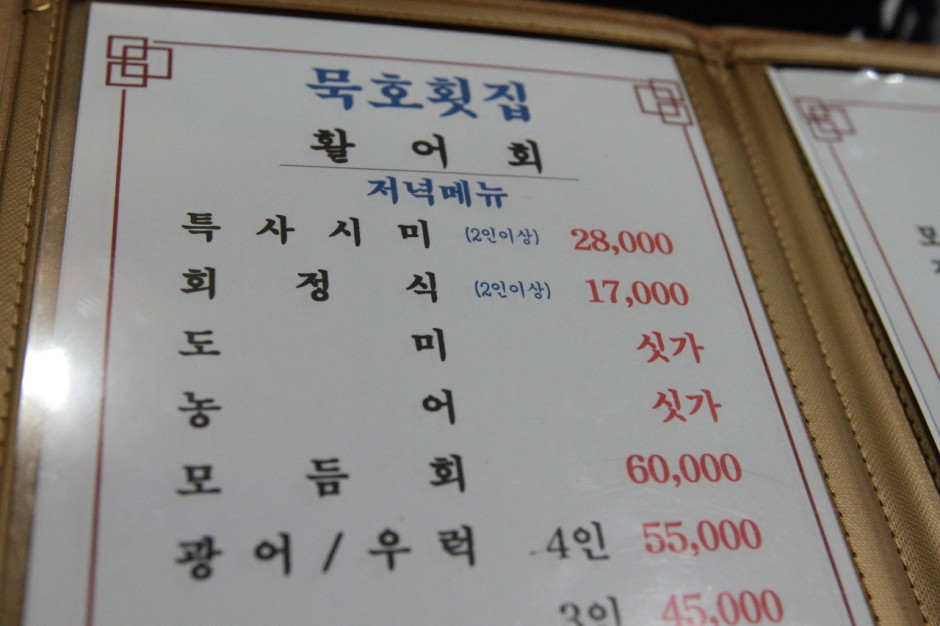 묵호횟집
활 어 회
저녁메뉴
특 사 시 미 (2인이상) 28,000
회 정 식 (2인이상) 17,000
도 미 싯가
농 어 싯가
모 듬 회 60,000
광 어 / 우 럭 4인 55,000
3인 45,000